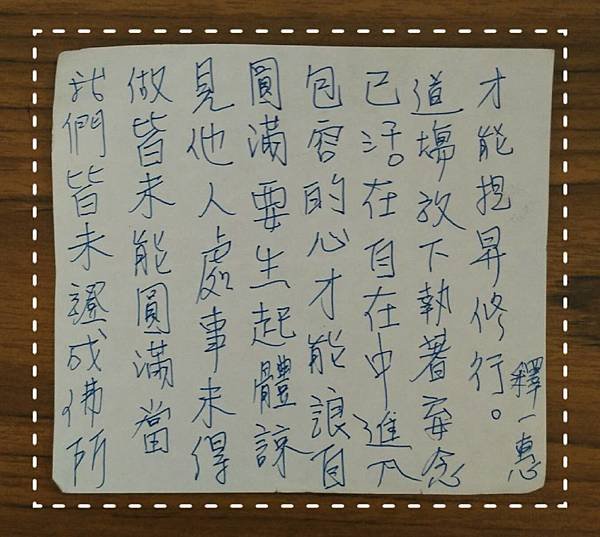 我們皆未證成佛所
做皆未能圓滿當
見他人處事未得
圓滿要生起體諒
包容的心才能誏自
己活在自在中進入
道場放下執著妄念
才能提昇修行。
釋一惠